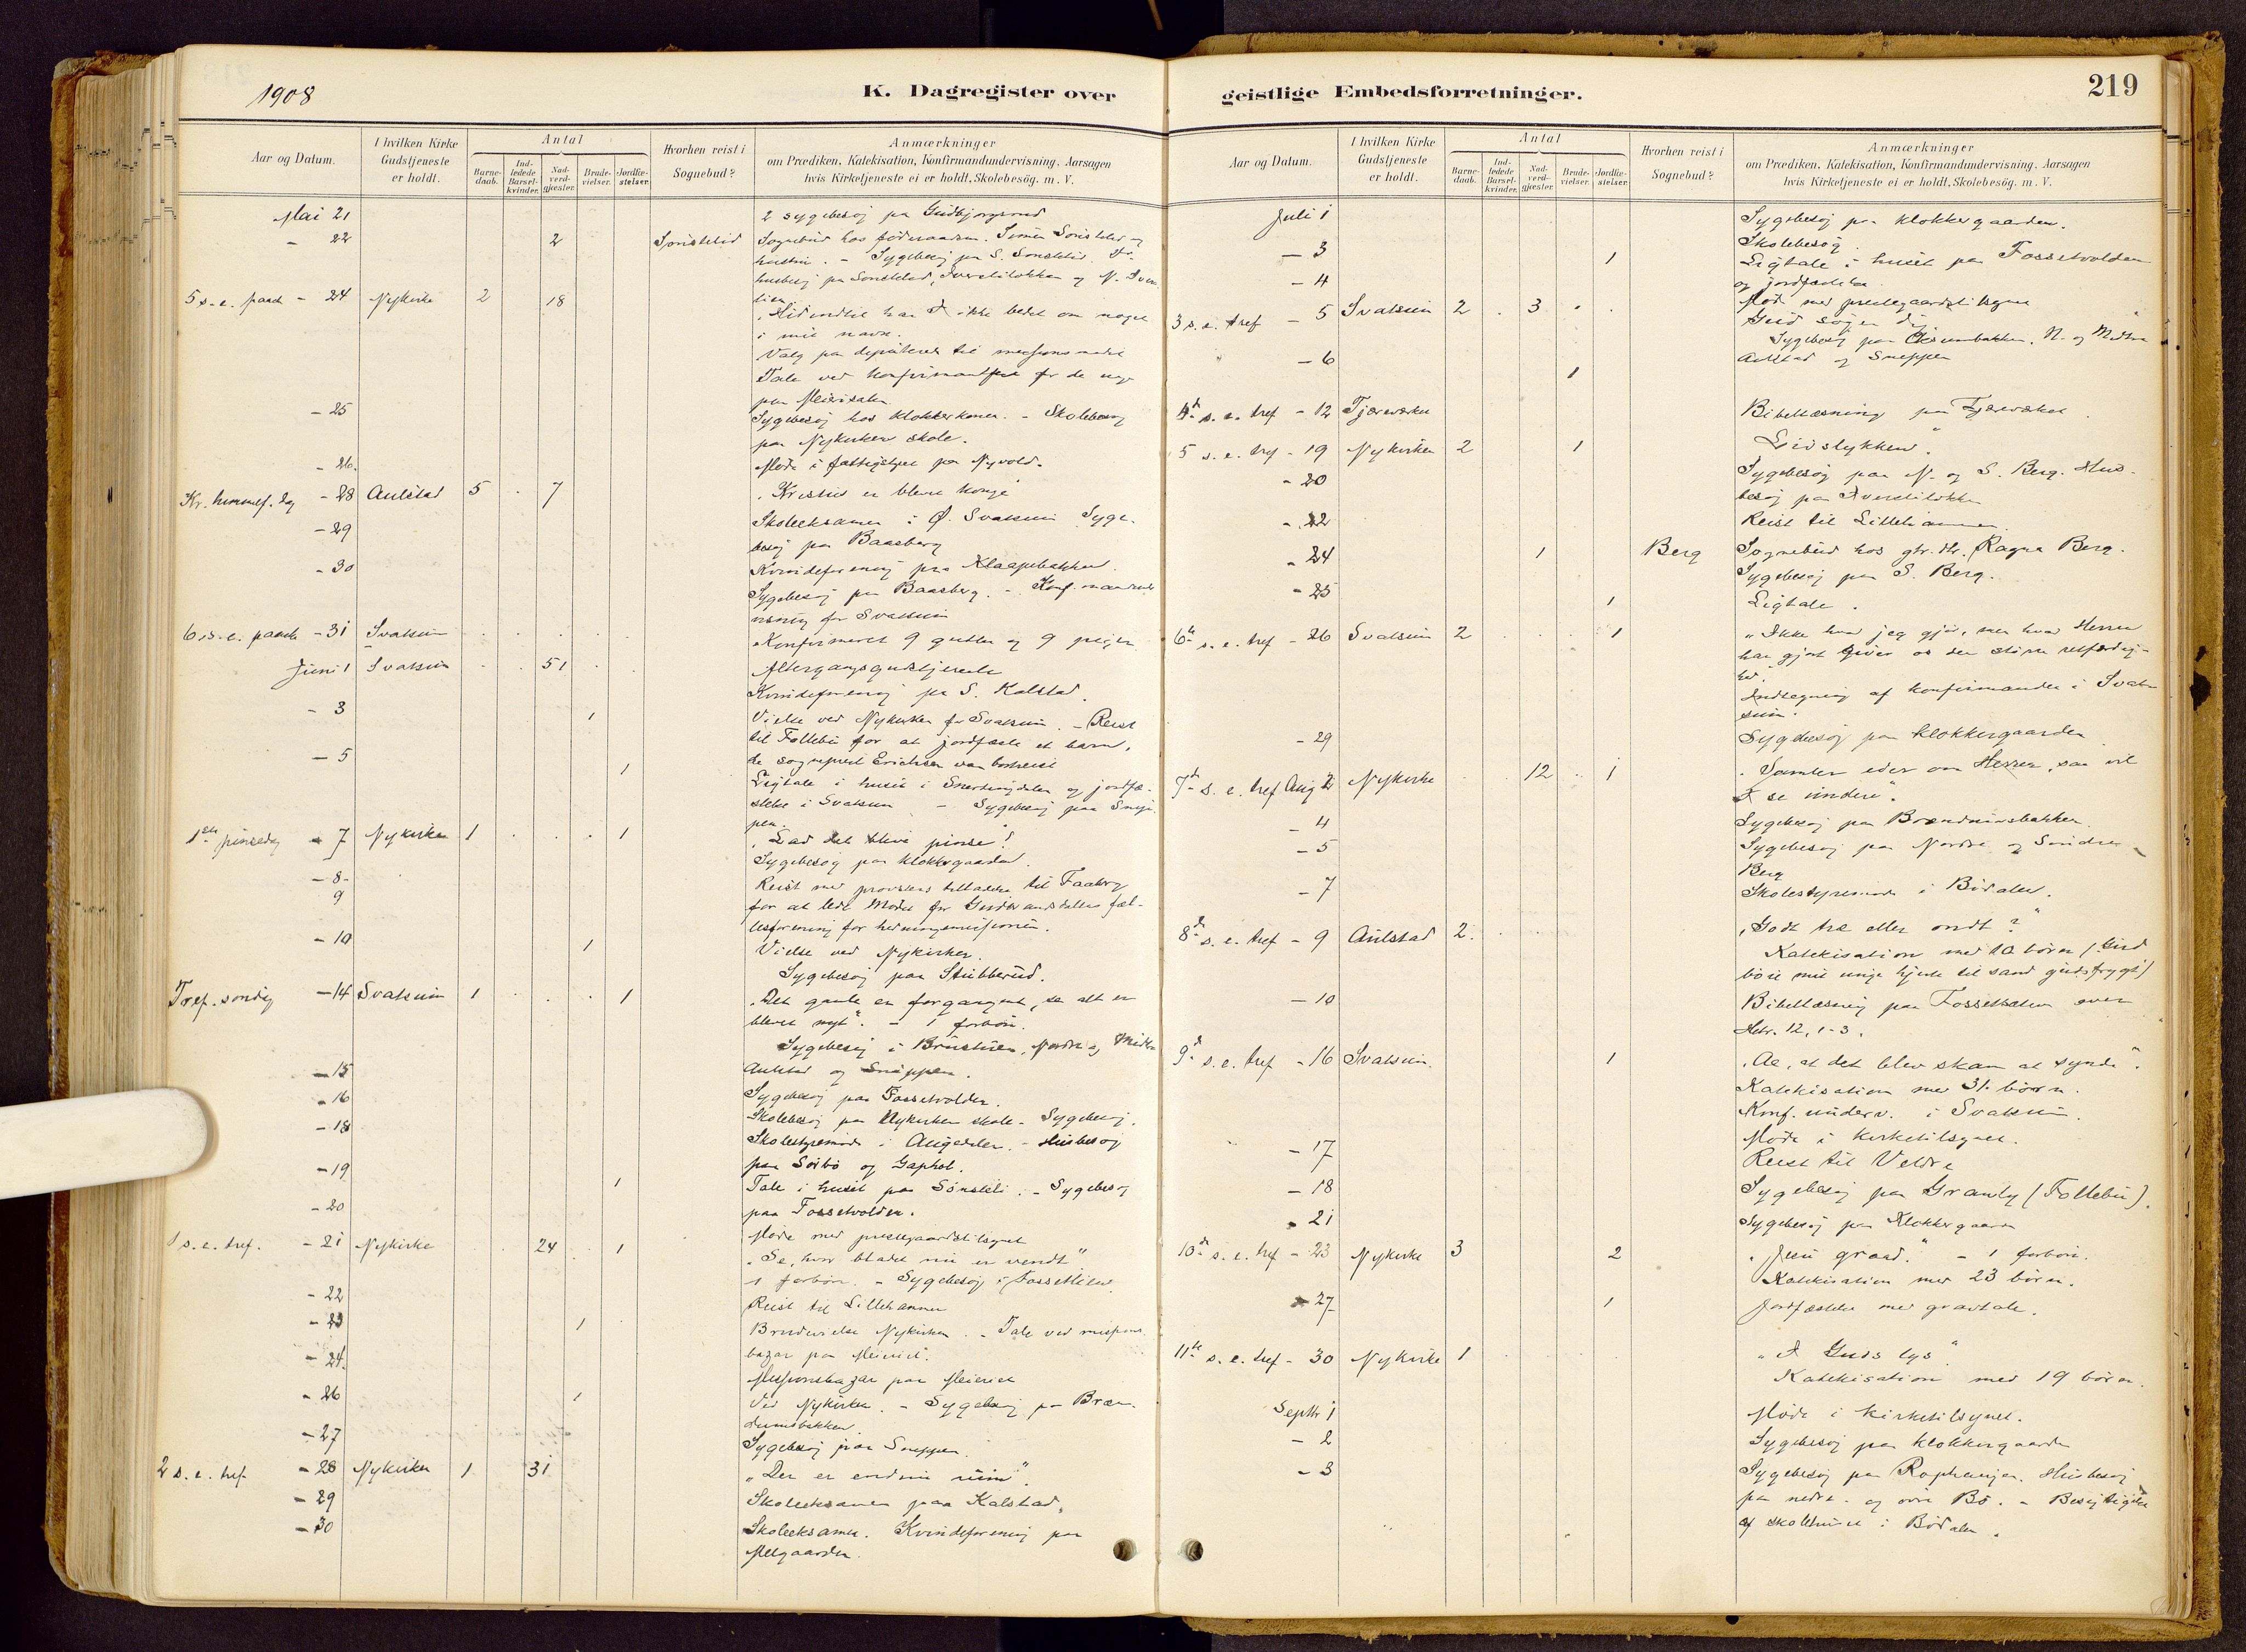 1908
K. Dagregister over
Aar og Datum.
I hvilken Kirke Gudstjeneste er holdt.
Antal
Barne-daab.
Ind-ledede Barsel-kvinder.
Nad-verd-gjester.
Brude-vielser.
Jordfæ-stelser.
Hvorhen reist i Sognebud?
Anmærkninger
om Prædiken, Katekisation, Konfirmandundervisning, Aarsagen
hvis Kirketjeneste ei er holdt, Skolebesög. m. V.
Mai 21 2 sygebesøg paa Gudbjorgsrud
- 22 2 Sognebud hos
hustru. - Sygebesøg paa S.
husbesøg paa
5 s. e. paask - 24 Nykirke 2 18 "Hidindtil har I ikke bedet om noget
i mit navn.
Valg paa til
Tale ved for de
paa Meierisalen
- 25 Sygebesøg hos klokkerkonen. - Skolebesøg
paa Nykirken skole.
- 26. Møde i fattigstyret paa Nyvold.
Kr. himmelf. dag - 28 Aulstad 5 . 7 "Kristus er bleve konge"
- 29 Skoleeksamen i Ø. Svatsum Syge-
besøg paa Baasberg
- 30 Kvindeforening paa Klaapebakken.
Sygebesøg paa Baasberg. - Konf.
for Svatsum
6 s. e. paask - 31 Svatsum Konfirmeret 9 gutter og 9 piger
Juni 1 Svatsum 51 Altergangsgudstjeneste
Kvindeforening paa S. Kalstad.
- 3 1 Vielse ved Nykirken for Svatsum. - Reist
til Follebu for at jordfæste et barn,
da sogneprest Erichsen var bortreist
- 5 1 Ligtale i huset i og jordfæ-
stelse i Svatsum - Sygebesøg paa Snep-
pen.
1ste pinsedag - 7 Nykirken 1 . . . 1 "Lad det blive pinse"!
Sygebesøg paa klokkergaarden.
- 8 - Reist med provstens tilladelse til Faaberg
9 for at lede Mødet for Gudbrandsdalens fæl-
lesforening for hedningemissionen.
- 10 1 Vielse ved Nykirken.
Sygebesøg paa Stubberud.
Tref. søndag - 14 Svatsum 1 . . . 1 "Det gamle er forgangent, se alt er
blevet nyt". - 1 forbøn.
Sygebesøg i Brustuen, Nordre og Midtre
- 15 Aulstad og Sneppen.
- 16 Sygebesøg paa Fossetvolden.
- 18 Skolebesøg paa Nykirken skole - Sygebesøg.
Skolestyremøde i Augedalen. - Husbesøg
paa Sørbø og Gaphol.
- 19 1 Tale i huset paa Sønsteli. - Sygebesøg
- 20 paa Fossetvolden.
Møde med prestegaardstilsynet
1 s. e. tref. - 21 Nykirke 24 . 1 "Se, hvor bladet nu er vendt"
1 forbøn. - Sygebesøg i
- 22 Reist til Lillehammer
- 23 1 Brudevielse Nykirken. - Tale ved missions
bazar paa Meieriet.
- 24. Missionsbazar paa Meieriet
- 26 1 Ved Nykirken. - Sygebesøg paa Bræn-
- 27 Sygebesøg paa Sneppen.
2 s. e. tref. - 28 Nykirken 1 31 "Der er endnu rum".
- 29 Skoleeksamen paa Kalstad.
- 30 Skoleeksamen. Kvindeforening paa
Melgaarden.
geistlige Embedsforretninger.
219
Aar og Datum.
I hvilken Kirke Gudstjeneste er holdt.
Antal
Barne-daab.
Ind-ledede Barsel-kvinder.
Nad-verd-gjæster.
Brude-vielser.
Jordfæ-stelser.
Hvorhen reist i Sognebud?
Anmærkninger
om Prædiken, Katekisation, Konfirmandundervisning, Aarsagen
hvis Kirketjeneste ei er holdt, Skolebesög. m. V.
Juli 1 Sygebesøg paa klokkergaarden.
Skolebesøg.
- 3 1 Ligtale i huset paa Fossetvolden
og jordfæstelse
- 4 Møde med prestegaardstilsynet
3 s. e. tref - 5 Svatsum 2 . 3 . . Gud søger dig
Sygebesøg paa N. og Midtre
- 6 1 Aulstad og Sneppen
4d s. e. tref - 12 Tjæreværket Bibellæsning paa Tjæreværket.
5 s. e. tref - 19 Nykirken 2 1 "Livslykken".
- 20 Sygebesøg paa N. og S. Berg. Hus-
besøg paa
- 22 Reist til Lillehammer.
- 24 1 Berg Sognebud hos Ragna Berg.
Sygebesøg paa S. Berg.
- 25 1 Ligtale.
6te s. e. tref - 26 Svatsum 2 1 "Ikke hvad jeg gjør, men hvad Herren
har gjort giver os den større retfærdig-
hed.
Indtegning af konfirmander i Svat-
sum.
- 29 Sygebesøg paa Klokkergaarden
7d s. e. tref Aug 2 Nykirke 12 . 1 "Samler eder om Herren, saa vil
I se under".
- 4 Sygebesøg paa
- 5 Sygebesøg paa Nordre og Søndre
Berg
- 7 Skolestyremøde i Bødalen.
8d s. e. tref - 9 Aulstad 2. "Godt træ eller ondt?"
Katekisation med 10 børn (Gud
bøie mit unge hjerte til sand gudsfrygt)
- 10 Bibellæsning paa Fossetsalen over
Hebr. 12, 1-3.
9d s. e. tref - 16 Svatsum. 1 "Aa, at det blev skam at synde".
Katekisation med 31 børn.
Konf. underv. i Svatsum.
Møde i kirketilsynet.
- 17 Reist til Veldre
- 18 Sygebesøg paa Granly (Follebu).
- 21 Sygebesøg paa Klokkergaarden
10d s. e. tref - 23 Nykirke 3 2 "Jesu graad." - 1 forbøn.
Katekisation med 23 børn.
- 27 1 Jordfæstelse med gravtale.
11te s. e. tref - 30 Nykirke 1 "I Guds lys".
Katekisation med 19 børn.
Septbr 1 Møde i kirketilsynet.
- 2 Sygebesøg paa klokkergaarden
- 3 Sygebesøg paa Husbesøg
paa nedre og øvre Bø. - Besigtigelse
af skolehuset i Bødalen.